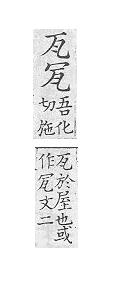 瓦
吾化
切施
瓦於屋也或
作文二